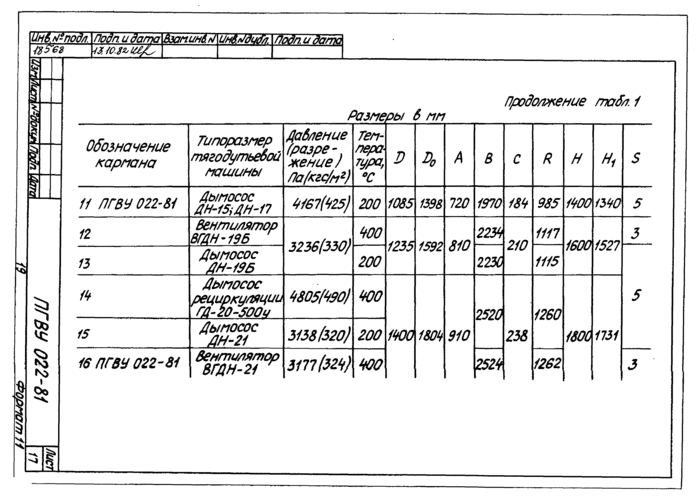 Инв.№ подл. Подп. и дата Взам.инв.N Инв.N дубл. Подп. и дата
18568 13.10.82
Продолжение табл. 1
Размеры в мм
Обозначение кармана Типоразмер тягодутьевой машины Давление (разрежение) Па(кгс/м²) Температура, °С D D₀ A B C R H H₁ S
11 ПГВУ 022-81 Дымосос ДН-15; ДН-17 4167(425) 200 1085 1398 720 1970 184 985 1400 1340 5
12 Вентилятор ВГДН-19Б 3236(330) 400 1235 1592 810 2234 210 1117 1600 1527 3
13 Дымосос ДН-19Б 200 2230 1115
14 Дымосос рециркуляции ГД-20-500у 4805(490) 400 2520 1260 5
15 Дымосос ДН-21 3138(320) 200 1400 1804 910 238 1800 1731
16 ПГВУ 022-81 Вентилятор ВГДН-21 3177(324) 400 2524 1262 3
Изм. Лист № докум. Подп. Дата
ПГВУ 022-81
Лист
17
19
Формат 11